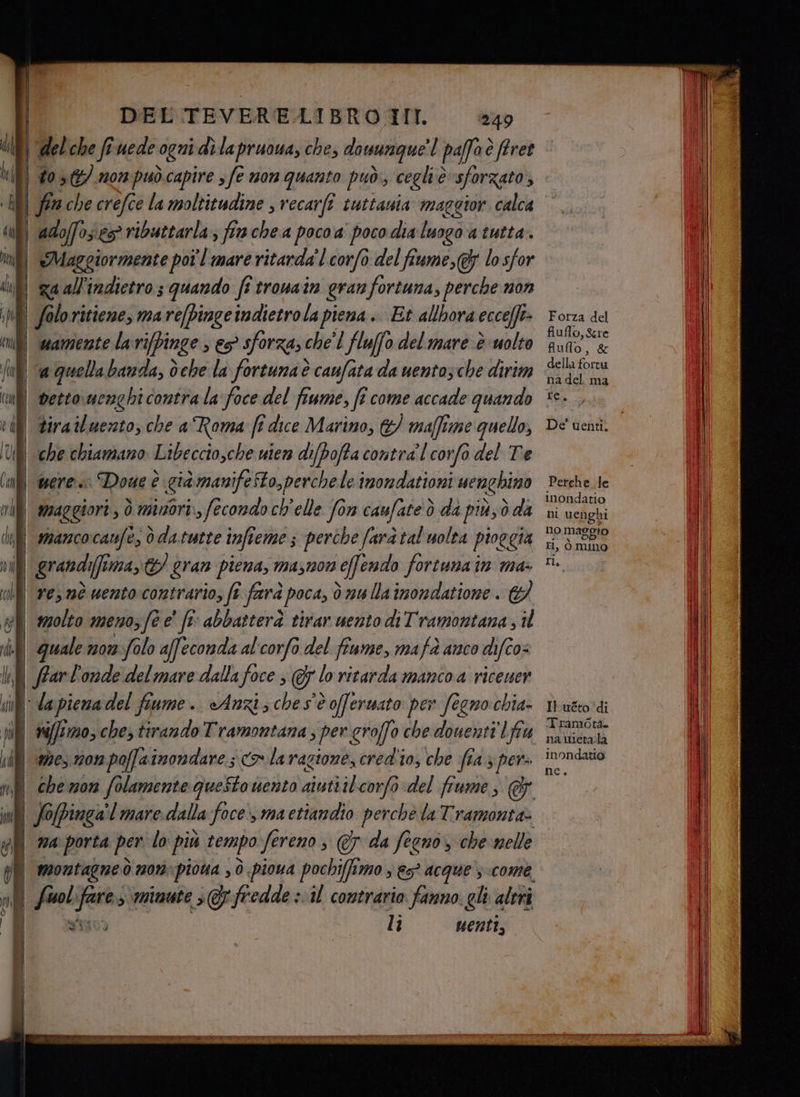 DEL TEVERE LIBRO III. 249
del che ſi uede ogni dì la pruoua, che, douunque'l paſſo è ſtret
to, & non può capire, ſe non quanto può, ceglì è sforzato,
fin che creſce la moltitudine, recarſi tuttauia maggior calca
adoſſo, & ributtarla, fin che a poco a poco dia luogo a tutta.
Maggiormente poi'l mare ritarda'l corſo del fiume, & lo sfor
za all'indietro; quando ſi troua in gran fortuna, perche non
ſolo ritiene, ma reſpinge indietro la piena. Et allhora ecceſſi-
uamente la riſpinge, & sforza, che'l fluſſo del mare è uolto
a quella banda, ò che la fortuna è cauſata da uento, che dirim
petto uenghi contra la foce del fiume, ſi come accade quando
tira il uento, che a Roma ſi dice Marino, & maſſime quello,
che chiamano Libeccio, che uien diſpoſta contra'l corſo del Te
uere. Doue è già manifeſto, perche le inondationi uenghino
maggiori, ò minori, ſecondo ch'elle ſon cauſate ò da più, ò da
manco cauſe, ò da tutte inſieme; perche ſarà tal uolta pioggia
grandiſſima, & gran piena, ma, non eſſendo fortuna in ma-
re, nè uento contrario, ſi farà poca, ò nulla inondatione. &
molto meno, ſe e' ſi abbatterà tirar uento di Tramontana, il
quale non ſolo aſſeconda al corſo del fiume, ma fà anco diſco-
ſtar l'onde del mare dalla foce, & lo ritarda manco a riceuer
la piena del fiume. Anzi, che s'è oſſeruato per ſegno chia-
riſſimo, che, tirando Tramontana, per groſſo che douenti'l fiu
me, non poſſa inondare; & la ragione, cred'io, che ſia, per-
che non ſolamente queſto uento aiuti il corſo del fiume, &
ſoſpinga'l mare dalla foce, ma etiandio perche la Tramonta-
na porta per lo più tempo ſereno, & da ſegno, che nelle
montagne ò non pioua, ò pioua pochiſſimo, & acque, come
ſuol fare, minute, & fredde: il contrario fanno gli altri
Ii uenti,
Forza del
fluſſo, &re
fluſſo, &
della fortu
na del ma
re.
De' uenti.
Perche le
inondatio
ni uenghi
no maggio
ri, ò mino
ri.
Il uẽto di
Tramõta-
na uieta la
inondatio
ne.